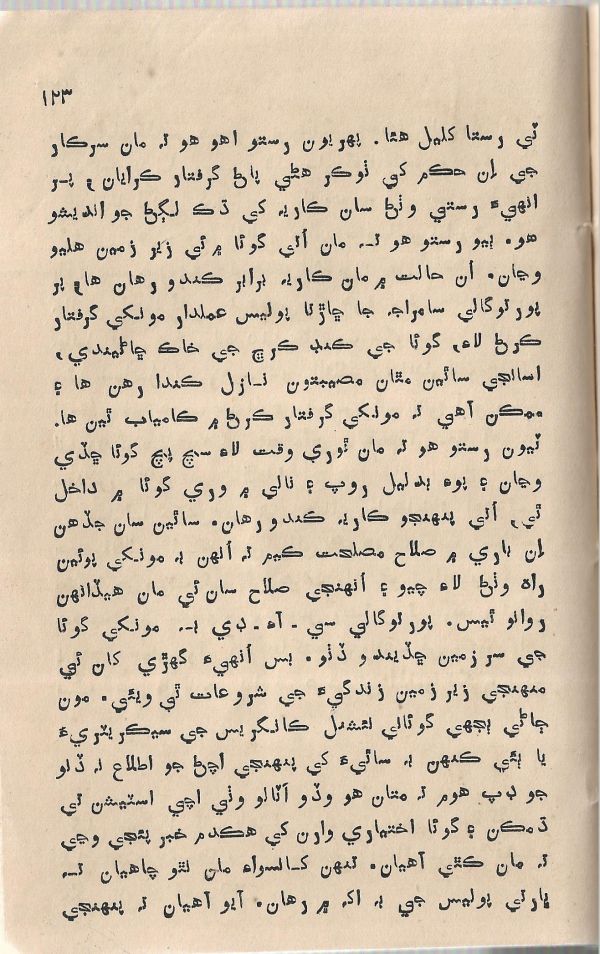 ١٢٣
ٽي رستا کليل هئا. پهريون رستو اهو هو تہ مان سرڪار
جي اِن حڪم کي ٺوڪر هڻي پاڻ گرفتار ڪرايان، پر
انهيءَ رستي وٺڻ سان ڪاريہ کي ڌڪ لڳڻ جو انديشو
هو. ٻيو رستو هو تہ مان اُتي گوئا ۾ ئي زير زمين هليو
وڃان. اُن حالت ۾ مان ڪاريہ برابر ڪندو رهان ها، پر
پورٽوگالي سامراجہ جا چاڙتا پوليس عملدار مونکي گرفتار
ڪرڻ لاءِ، گوئا جي ڪنڊ ڪڙڇ جي خاڪ ڇاڻيندي،
اسانجي ساٿين مٿان مصيبتون نازل ڪندا رهن ها ۽
ممڪن آهي تہ مونکي گرفتار ڪرڻ ۾ ڪامياب ٿين ها.
ٽيون رستو هو تہ مان ٿوري وقت لاءِ سچ پچ گوئا ڇڏي
وڃان ۽ پوءِ بدليل روپ ۽ نالي ۾ وري گوئا ۾ داخل
ٿي، اُتي پنهنجو ڪاريہ ڪندو رهان. ساٿين سان جڏهن
اِن باري ۾ صلاح مصلحت ڪيم تہ اُنهن بہ مونکي پوئين
راهہ وٺڻ لاءِ چيو ۽ اُنهنجي صلاح سان ئي مان هيڏانهن
روانو ٿيس. پورٽوگالي سي۔ آءِ۔ ڊي بہ مونکي گوئا
جي سرزمين ڇڏيندو ڏٺو. بس اُنهيءَ گهڙي کان ئي
منهنجي زير زمين زندگيءَ جي شروعات ٿي ويئي. مون
ڄاڻي ٻجهي گوئالي نئشنل ڪانگريس جي سيڪريٽريءَ
يا ٻئي ڪنهن بہ ساٿيءَ کي پنهنجي اچڻ جو اطلاع نہ ڏنو
جو ڊپ هوم تہ متان هو وڏو اُٽالو وٺي اچي اسٽيشن تي
ڌمڪن ۽ گوئا اختياري وارن کي هڪدم خبر پئجي وڃي
تہ مان ڪٿي آهيان. تنهن کانسواءِ مان نٿو چاهيان تہ
ڀارتي پوليس جي بہ اک ۾ رهان. آيو آهيان تہ پنهنجي